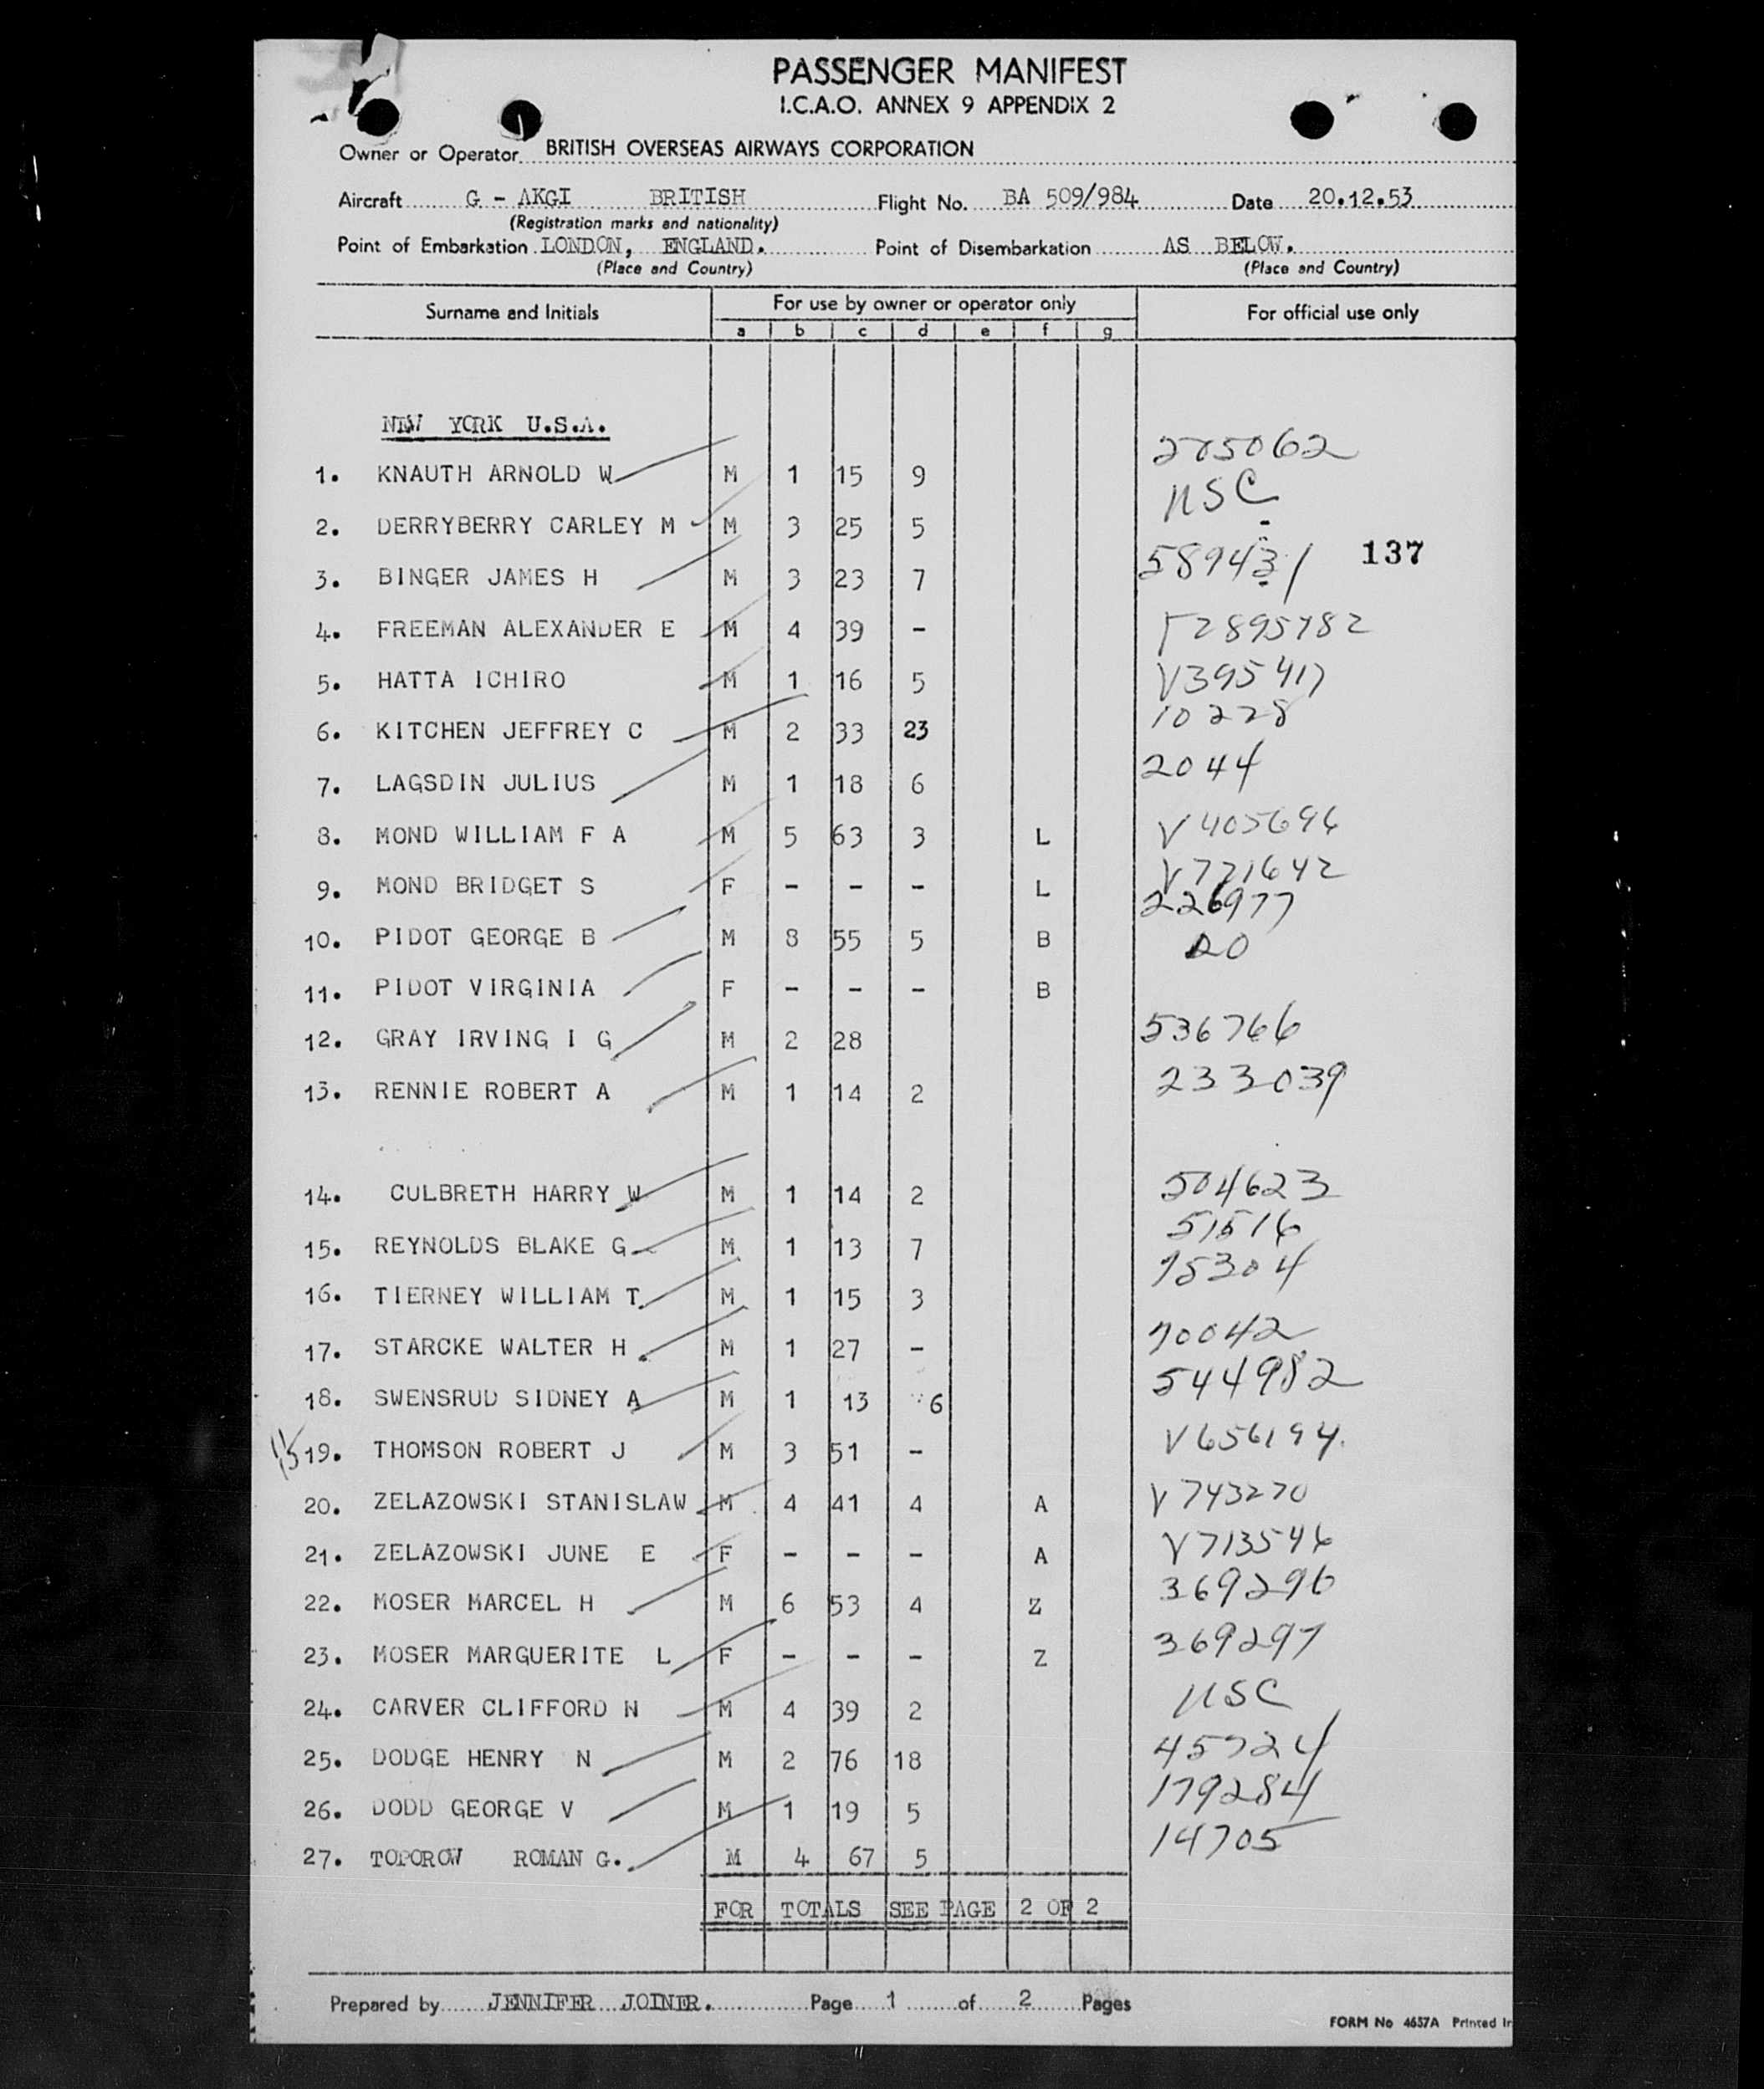 PASSENGER MANIFEST
I.C.A.O. ANNEX 9 APPENDIX 2
Owner or Operator BRITISH OVERSEAS AIRWAYS CORPORATION
Aircraft G - AKGI BRITISH Flight No. BA 509/984 Date 20.12.53
(Registration marks and nationality)
Point of Embarkation LONDON, ENGLAND. Point of Disembarkation AS BELOW.
(Place and Country) (Place and Country)
Surname and Initials For use by owner or operator only For official use only
a b c d e f g
NEW YORK U.S.A.
1. KNAUTH ARNOLD W M 1 15 9
USC
2. DERRYBERRY CARLEY M M 3 25 5
137
3. BINGER JAMES H M 3 23 7 589431
4. FREEMAN ALEXANDER E M 4 39 -
5. HATTA ICHIRO M 1 16 5 V395417
6. KITCHEN JEFFREY C M 2 33 23 10228
7. LAGSDIN JULIUS M 1 18 6 2044
8. MOND WILLIAM F A M 5 63 3 L V405696
9. MOND BRIDGET S F - - - L V721642
226977
10. PIDOT GEORGE B M 8 55 5 B DO
11. PIDOT VIRGINIA F - - - B
12. GRAY IRVING I G M 2 28 536766
13. RENNIE ROBERT A M 1 14 2 233039
14. CULBRETH HARRY W M 1 14 2 504623
15. REYNOLDS BLAKE G M 1 13 7 51516
16. TIERNEY WILLIAM T M 1 15 3 75304
17. STARCKE WALTER H M 1 27 - 70042
18. SWENSRUD SIDNEY A M 1 13 6 544982
19. THOMSON ROBERT J M 3 51 - V656194
20. ZELAZOWSKI STANISLAW M 4 41 4 A V743270
21. ZELAZOWSKI JUNE E F - - - A V713546
22. MOSER MARCEL H M 6 53 4 Z 369296
23. MOSER MARGUERITE L F - - - Z 369297
24. CARVER CLIFFORD N M 4 39 2 USC
25. DODGE HENRY N M 2 76 18 45724
26. DODD GEORGE V M 1 19 5 179284
27. TOPOROW ROMAN G. M 4 67 5 14705
FOR TOTALS SEE PAGE 2 OF 2
Prepared by JENNIFER JOINER. Page 1 of 2 Pages
FORM No 4657A Printed In